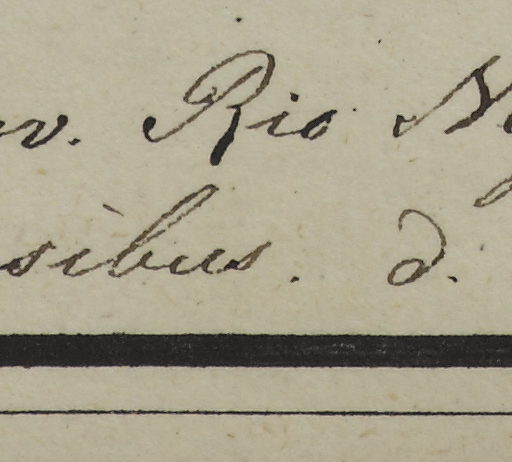 v. Rio
sibus. d.